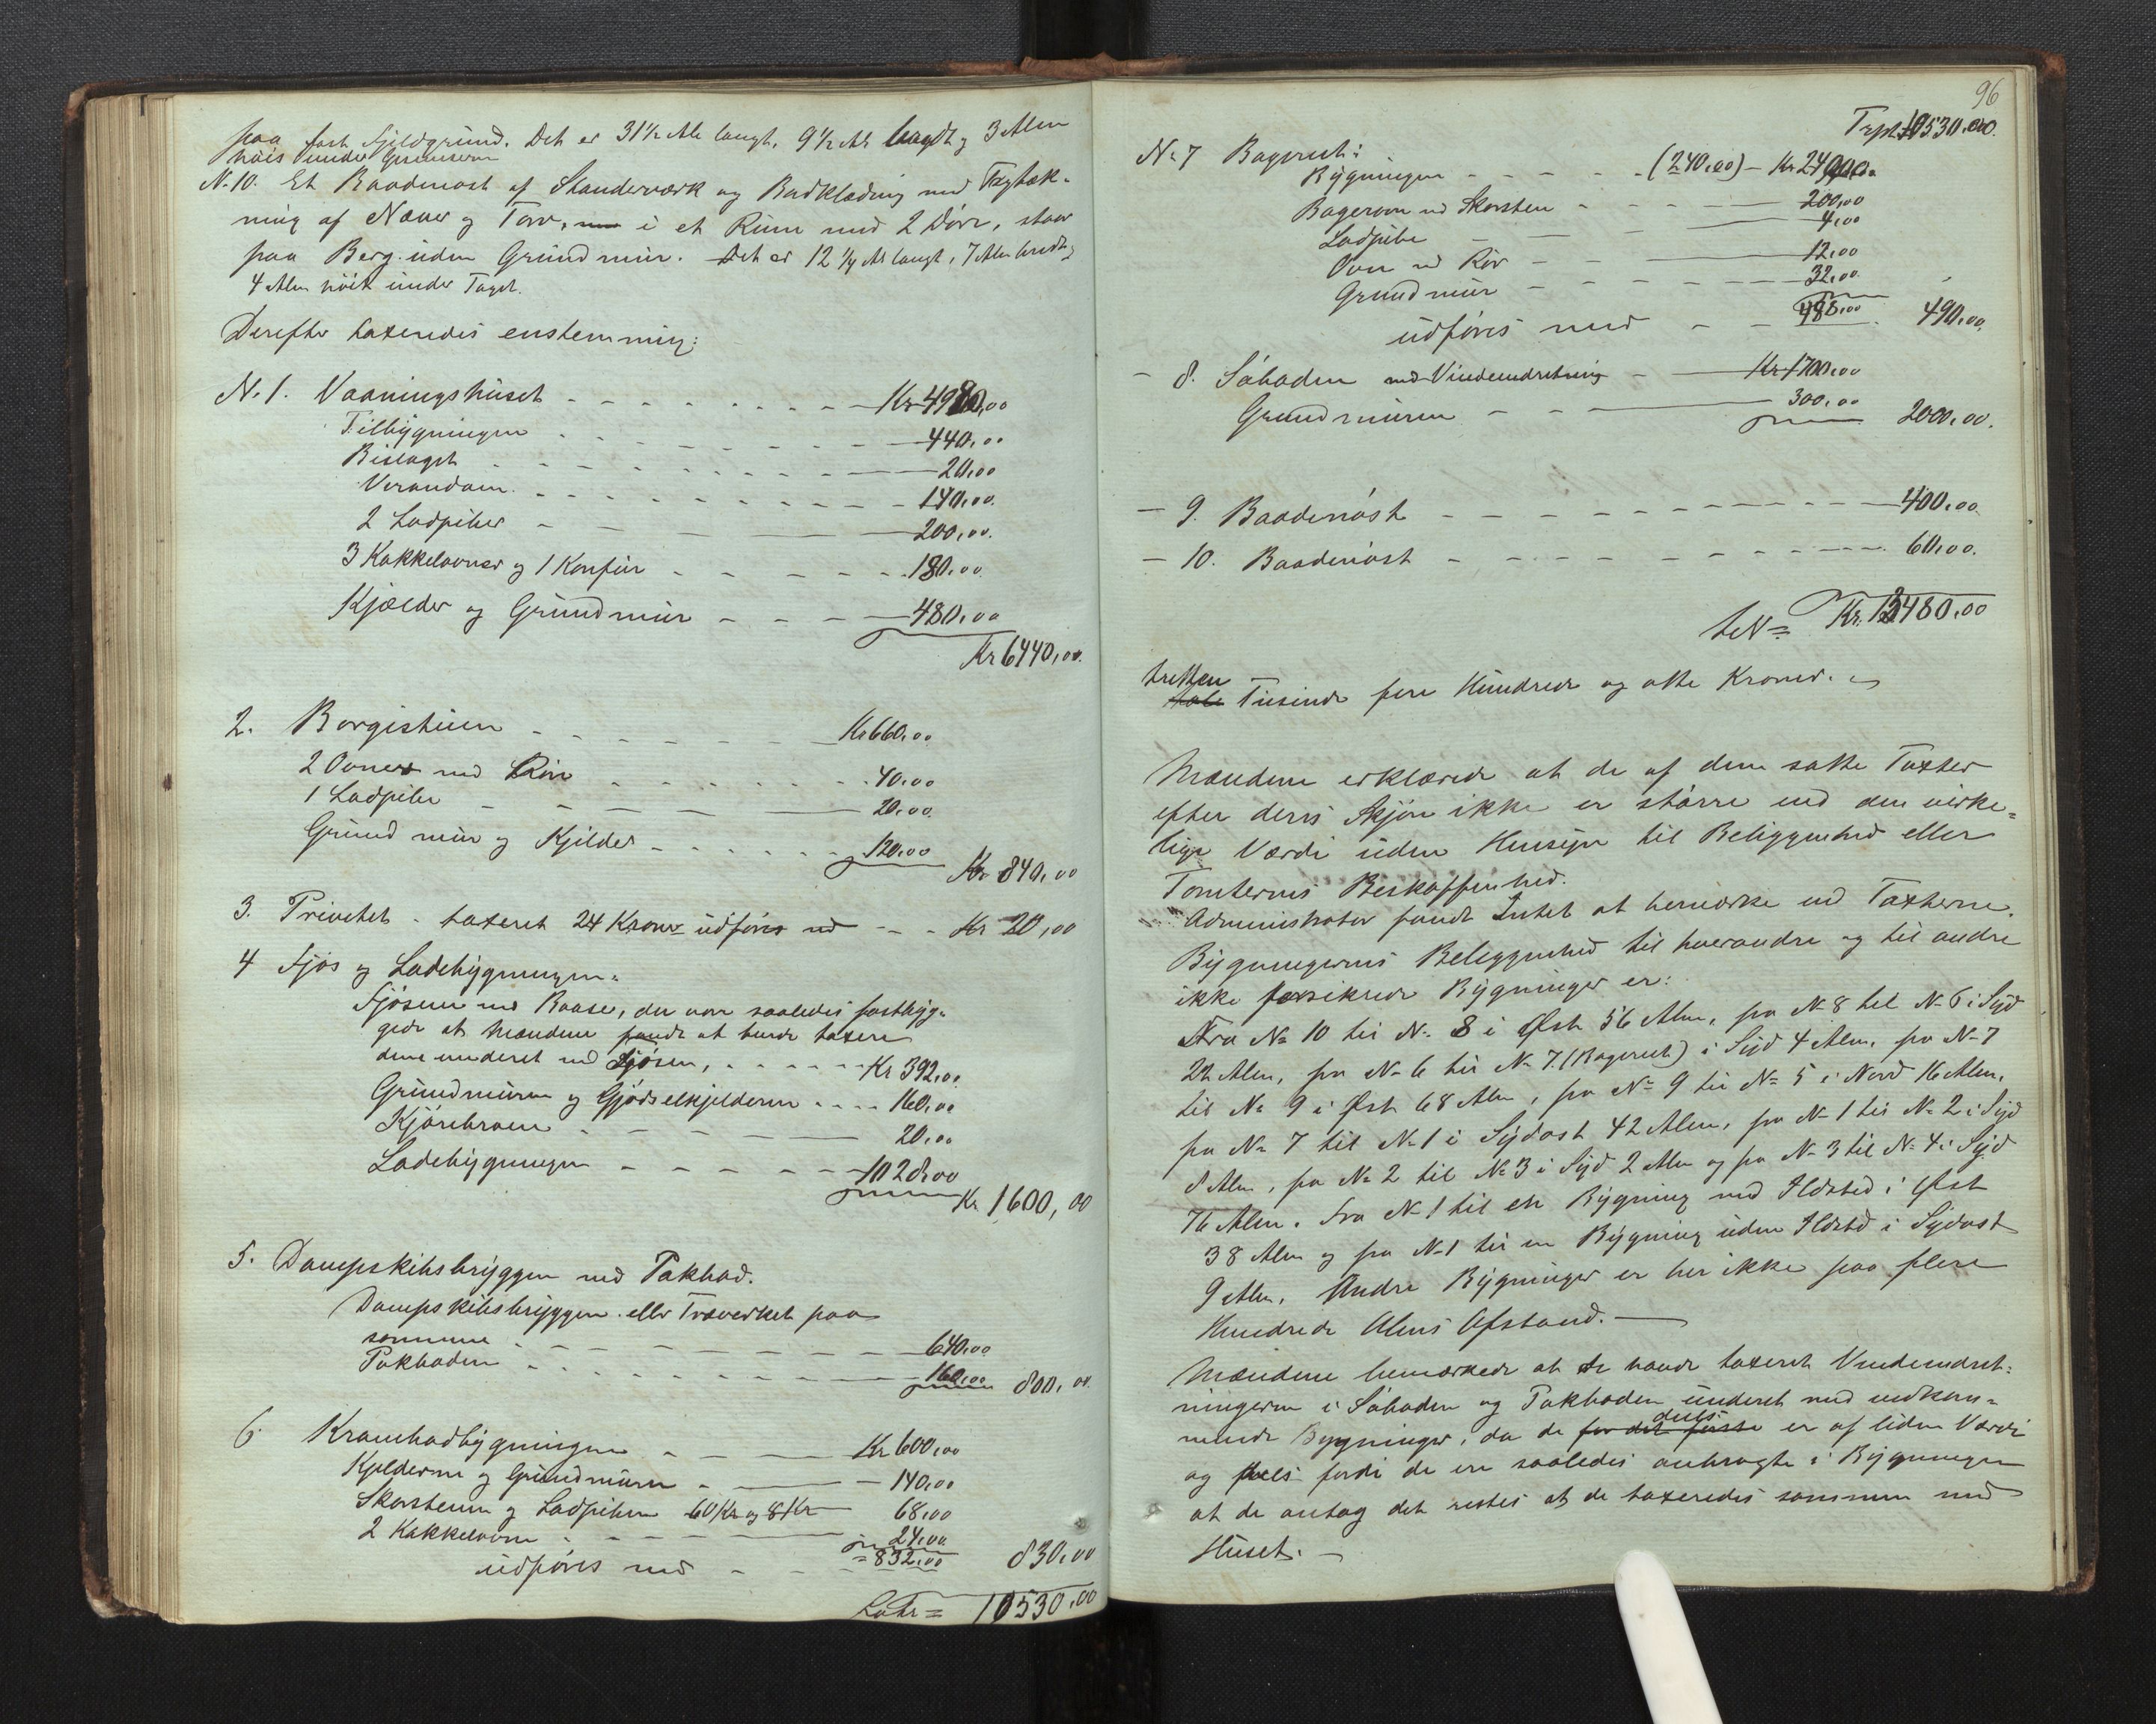 paa fast Fjeldgrund. Det er 31½ Al langt, 9½ Al bredt og 3 Alen
høit under Gesimsen
N. 10. Et Baadenøst af Standerværk og Bordklædning med Tagtæk-
ning af Næver og Torv, i et Rum med 2 Døre, staar
paa Berg uden Grundmur. Det er 12¼ Al langt, 7 Alen bredt og
4 Alen høit under Taget.
Derefter taxeredes enstemmig:
N. 1. Vaaningshuset - - - Kr 4980,00
Tilbygningen - - - 440,00
Bislaget - - - 20,00
Verandaen - - - 140,00
2 Ladpiber - - - 200,00
3 Kakkelovner og 1 Komfur - - - 180,00
Kjælder og Grundmur - - - 480,00
Kr 6440,00
2. Borgestuen - - - Kr 660,00
2 Ovner med Rør - - - 40,00
1 Ladpibe - - - 20,00
Grundmur og Kjelder - - - 120,00
Kr 840,00
3. Privetet - taxeret 24 Kroner udføres med - - - Kr 20,00
4 Fjøs og Ladebygningen:
Fjøsene med Baase, der var saaledes fastbyg-
gede at Mændene fandt at burde taxere
dem underet med Fjøsen, - - - Kr 392,00
Grundmuren og Gjødselkjelderen - - - 160,00
Kjørebroen - - - 20,00
Ladebygningen - - - 1028,00
Kr 1600,00
5. Dampskibsbryggen med Pakbod.
Dampskibsbryggen eller Træverket paa
samme - - - 640,00
Pakboden - - - 160,00 800,00
6. Krambodbygningen - - - Kr 600,00
Kjelderen og Grundmuren - - - 140,00
Skorstenen og Ladpiben 60 Kr og 8 Kr - 68,00
2 Kakkelovne - - - 24,00
= 832,00
udføres med - - - 830,00
Latr = 10530,00
96
Trpt 10530,00
N. 7 Bageriet:
Bygningen - - - (240,00) - Kr 240,00
Bagerovn med Skorsten - - - 200,00
Ladpibe - - - 4,00
Ovn med Rør - - - 12,00
Grundmur - - - 32,00
488,00
udføres med - - 490,00
- 8. Søboden med Vindeindretning - Kr 1700,00
Grundmuren - - - 300,00
2000,00
- 9. Baadenøst - - - 400,00
- 10. Baadenøst - - - 60,00
Kr. 13480,00
tretten
tolv Tusinde fire Hundrede og otte Kroner.
Mændene erklærede at de af dem satte Taxter
efter deres Skjøn ikke er større end den virke-
lige Værdi uden Hensyn til Beliggenhed eller
Tomternes Beskaffenhed.
Administrator fandt Intet at bemærke ved Taxterne.
Bygningernes Beliggenhed til hverandre og til andre
ikke forsikrede Bygninger er:
Fra No 10 til N. 8 i Øst 56 Alen, fra N. 8 til N. 6 i Syd
22 Alen, fra N. 6 til N. 7 (Bageriet) i Syd 4 Alen, fra N. 7
til No 9 i Øst 68 Alen, fra No 9 til No 5 i Nord 16 Alen,
fra No 7 til N. 1 i Sydost 42 Alen, fra N. 1 til No 2 i Syd
8 Alen, fra No 2 til No 3 i Syd 2 Alen og fra N. 3 til N. 4 i Syd
76 Alen. Fra N. 1 til en Bygning med Ildsted i Øst
38 Alen og fra N. 1 til en Bygning uden Ildsted i Sydost
9 Alen. Andre Bygninger er her ikke paa flere
Hundrede Alens Afstand.
Mændene bemærkede at de havde taxeret Vindeindret-
ningerne i Søboden og Pakboden underet med vedkom-
mende Bygninger, da de for det første dels er af liden Værdi
og dels fordi de ere saaledes anbragte i Bygningen
at de antog det rettest at de taxeredes sammen med
Huset. -